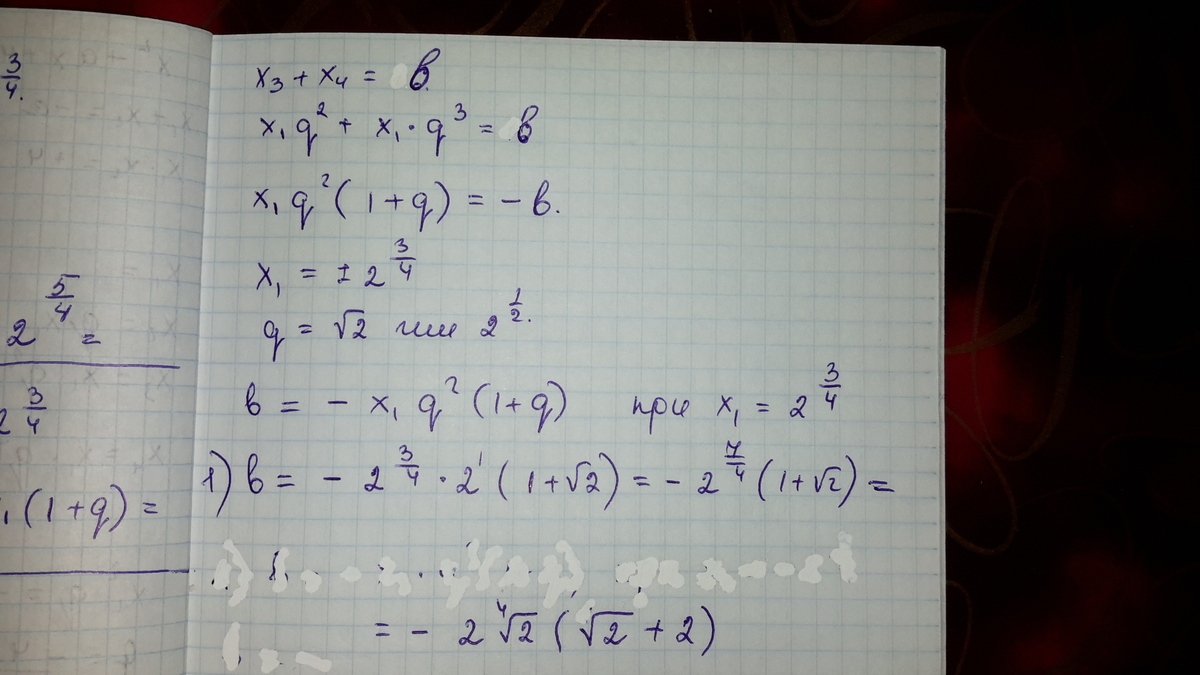 3/4.
5/4
2 =
2^(3/4)
₁(1+q) =
x₃ + x₄ = в.
x₁q² + x₁·q³ = в
x₁q²(1+q) = -в.
x₁ = ± 2^(3/4)
q = √2 или 2^(1/2).
в = - x₁q²(1+q) при x₁ = 2^(3/4)
1) в = - 2^(3/4) · 2¹(1+√2) = - 2^(7/4)(1+√2) =
= - 2 ⁴√2 (√2 + 2)